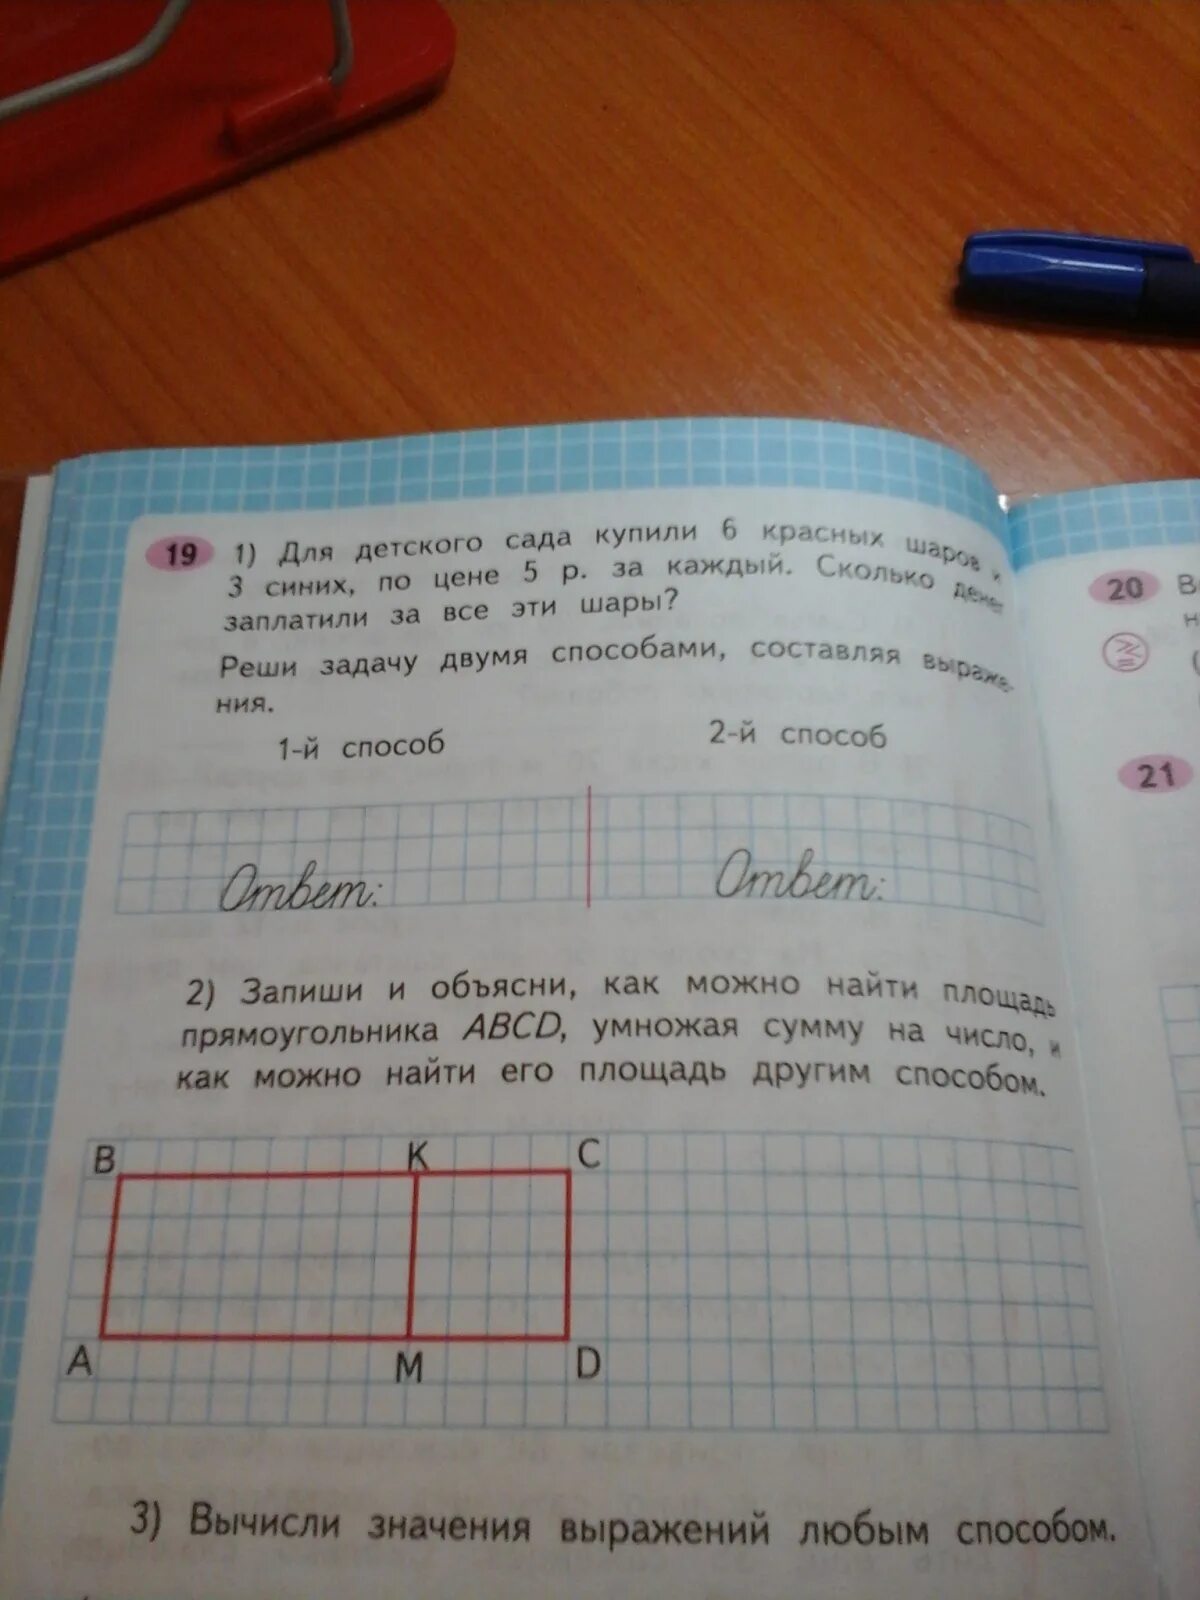 19 1) Для детского сада купили 6 красных шаров и
3 синих, по цене 5 р. за каждый. Сколько денег
заплатили за все эти шары?
Реши задачу двумя способами, составляя выраже-
ния.
1-й способ 2-й способ
Ответ: Ответ:
2) Запиши и объясни, как можно найти площадь
прямоугольника ABCD, умножая сумму на число, и
как можно найти его площадь другим способом.
B K C
A M D
3) Вычисли значения выражений любым способом.
20
21